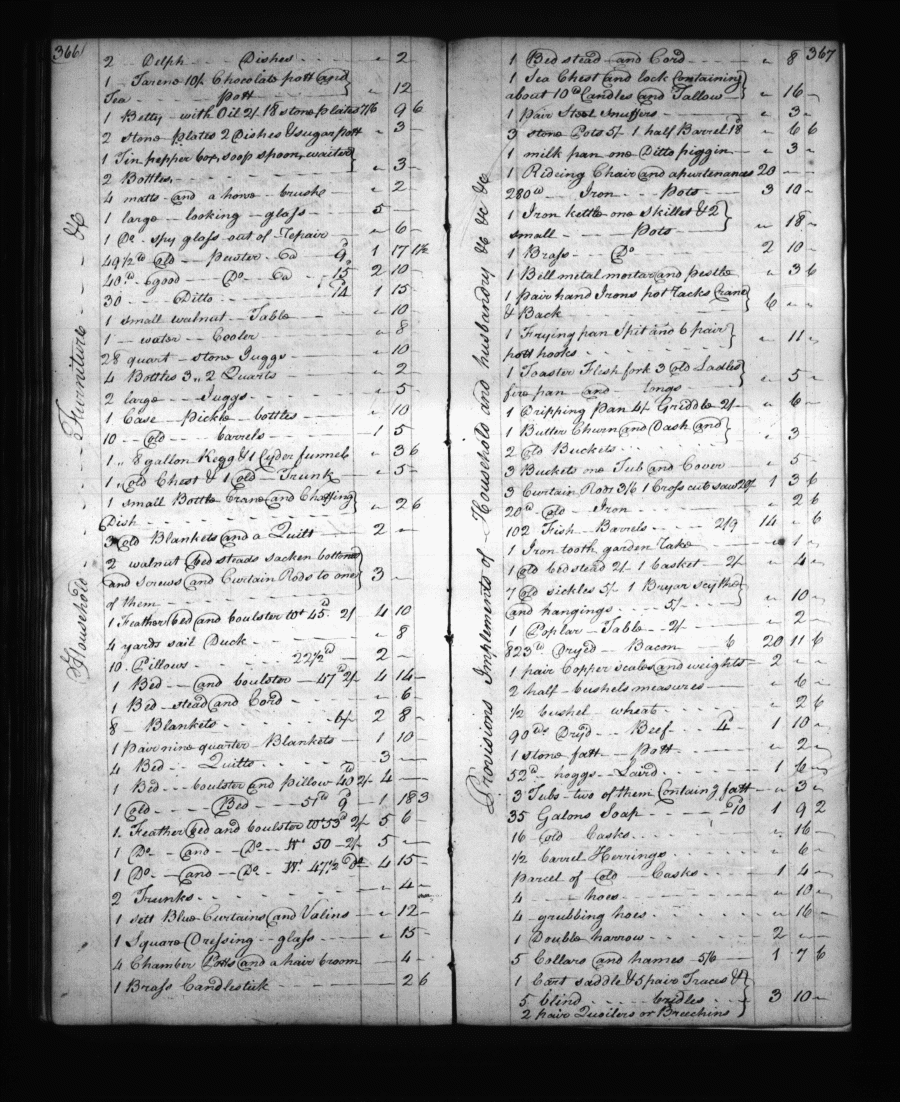 366
Household Furniture &c
2 Delph Dishes " 2
1 Tareno 10/. Chocolate pott and
Tea pott " 12
1 Betty with Oil 2/ 18 stone plates 7/6 9 6
2 stone plates 2 Dishes & sugar pott " 3
1 Tin pepper box, soop spoon, waiter
2 Bottles " 3
4 matts and a howe brushe " 2
1 large looking glass 5
1 Do. spy glass out of repair " 6
49½ lb old Pewter Ca 9d 1 17 1½
40 lb good Do. Ca 15 2 10
30 Ditto 14 1 15
1 small walnut Table " 10
1 water Cooler " 8
28 quart stone Juggs " 10
4 Bottles 3,, 2 Quarts " 2
2 large Juggs " 5
1 Case Pickle bottles " 10
10 old barrels 1 5
1,, 8 gallon Kegg & 1 Cyder funnel " 3 6
1,, old Chest & 1 old Trunk " 5
1 small Bottle Crane and Chaffing
Dish " 2 6
3 old Blankets and a Quilt 2
2 walnut bedsteads sacken bottoms
and Screws and Curtain Rods to one
of them 3
1 Feather bed and boulster wt 45 lb 2/ 4 10
4 yards sail Duck " 8
10 Pillows 22½ lb 2
1 Bed and boulster 47 lb 2/ 4 14
1 Bed stead and Cord " 6
8 Blankets 6/ 2 8
1 pair nine quarter Blankets 1 10
4 Bed Quilts 3
1 Bed boulster and pillow 40 lb 2/ 4
1 Old Bed 51 lb 9d 1 18 3
1 Feather bed and boulster wt 53 lb 2/ 5 6
1 Do. and Do. Wt 50 2/ 5
1 Do. and Do. Wt. 47½ Do 4 15
2 Trunks " 4
1 sett Blue Curtains and Valins " 12
1 Square Dressing glass " 15
4 Chamber Potts and a hair broom 4
1 Brass Candlestick 2 6
367
Provisions Implements of Household and husbandry &c &c &c
1 Bed stead and Cord " 8
1 Sea Chest and lock Containing
about 10 lb Candles and Tallow " 16
1 pair Steel Snuffers " 3
3 stone Pots 5/ 1 half Barrel 18d " 6 6
1 milk pan one Ditto piggin " 3
1 Rideing Chair and apurtenances 20
280 lb Iron Pots 3 10
1 Iron kettle one Skillet & 2
small Pots " 18
1 Brass Do 2 10
1 Bell metal mortar and pestle " 3 6
1 pair hand Irons pot racks Crane
& Back 6
1 Frying pan Spit and 6 pair
pott hooks " 11
1 Toaster Flesh fork 3 old Ladles
fire pan and tongs " 5
1 Dripping Pan 4/ Griddle 2/ " 6
1 Butter Churn and Dash and
2 old Buckets " 3
3 Buckets one Tub and Cover " 5
3 Curtain Rods 3/6 1 Cross cut saw 20/ 1 3 6
20 lb old Iron " 2 6
102 Fish Barrels 2/9 14 " 6
1 Iron tooth garden rake " 1
1 old bedstead 2/ 1 basket 2/ " 4
7 old sickles 5/ 1 Bryar scythe
and hangings 5/ " 10
1 Poplar Table 2/ " 2
823 lb Dryed Bacon 6 20 11 6
1 pair Copper scales and weights 2
2 half bushels measures " 6
½ bushel wheat " 2 6
90 lb Dryd Beef 4d 1 10
1 stone fatt Pott " 2
52 lb hoggs Laird 1 6
3 Tubs two of them Containg fatt " 3
35 Galons Soap 10 1 9 2
16 old Casks " 16
½ barrel Herrings " 6
parcel of old Casks 1 4
4 hoes " 10
4 grubbing hoes " 16
1 Double harrow 2
5 Collars and hames 5/6 1 7 6
1 Cart saddle & 5 pair Traces &
5 blind bridles 3 10
2 pair Quoilers or Breechins